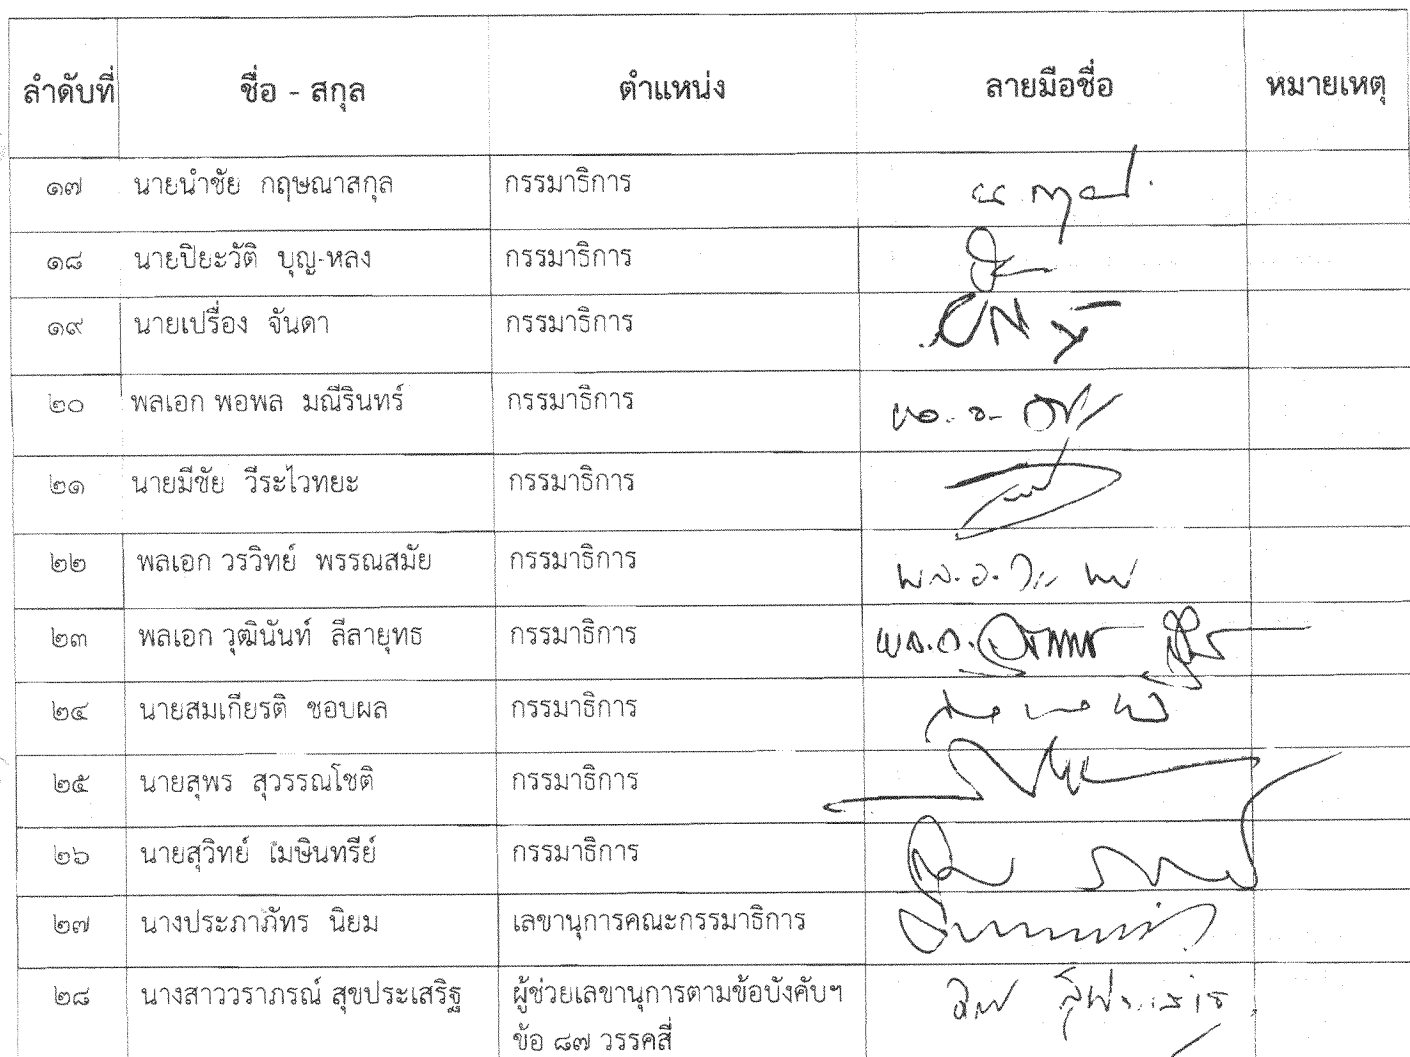 ลำดับที่ ชื่อ - สกุล ตำแหน่ง ลายมือชื่อ หมายเหตุ
๑๗ นายนำชัย กฤษณาสกุล กรรมาธิการ
๑๘ นายปิยะวัติ บุญ-หลง กรรมาธิการ
๑๙ นายเปรื่อง จันดา กรรมาธิการ
๒๐ พลเอก พอพล มณีรินทร์ กรรมาธิการ
๒๑ นายมีชัย วีระไวทยะ กรรมาธิการ
๒๒ พลเอก วรวิทย์ พรรณสมัย กรรมาธิการ พล.อ.
๒๓ พลเอก วุฒินันท์ ลีลายุทธ กรรมาธิการ พล.อ.
๒๔ นายสมเกียรติ ชอบผล กรรมาธิการ
๒๕ นายสุพร สุวรรณโชติ กรรมาธิการ
๒๖ นายสุวิทย์ เมษินทรีย์ กรรมาธิการ
๒๗ นางประภาภัทร นิยม เลขานุการคณะกรรมาธิการ
๒๘ นางสาววราภรณ์ สุขประเสริฐ ผู้ช่วยเลขานุการตามข้อบังคับฯ
ข้อ ๘๗ วรรคสี่